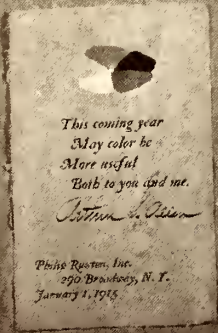 This coming year
May color be
More useful
Both to you and me.
Arthur S. Allen
Philip Ruxton, Inc.
290 Broadway, N. Y.
January 1, 1915